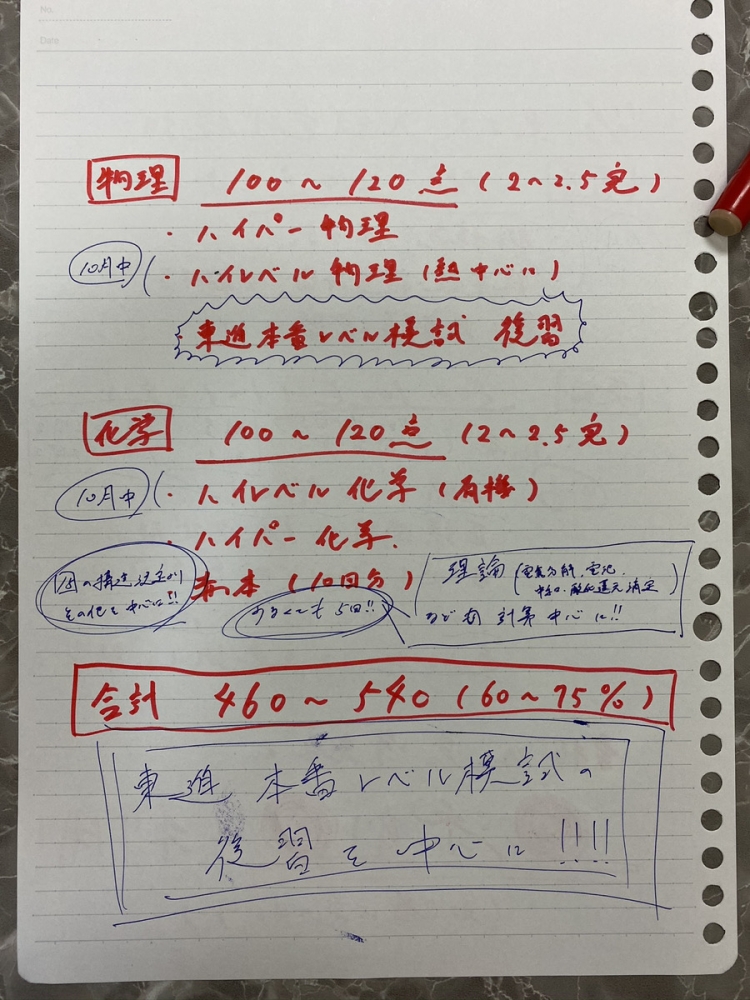 No.
Date
物理 100～120点 (2～2.5完)
・ハイパー物理
10月中 ・ハイレベル物理(熱中心に)
・東進本番レベル模試 復習
化学 100～120点 (2～2.5完)
10月中 ・ハイレベル化学(有機)
・ハイパー化学.
赤本 (10回分)
の構造決定
その他を中心に!!
少なくとも5回!!
理論 (電気分解、電池、
中和、酸化還元滴定)
など 計算中心に!!
合計 460～540 (60～75%)
東進 本番レベル模試の
復習を中心に!!!!